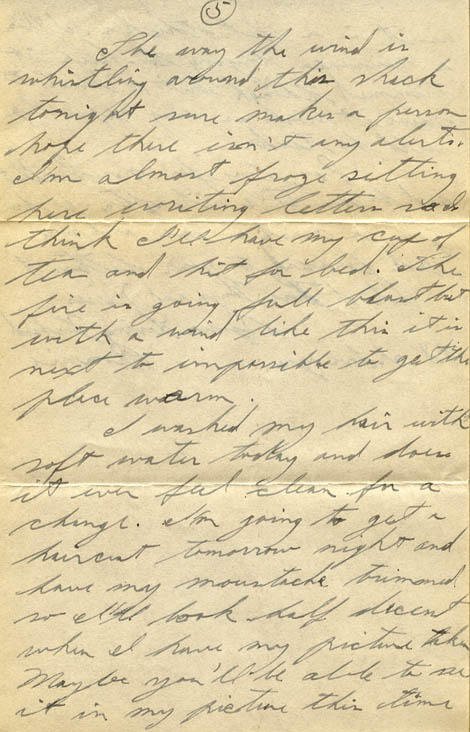 5
The way the wind is
whistling around this shack
tonight sure makes a person
hope there isn't any alerts.
I'm almost froze sitting
here writing letters so I
think I'll have my cup of
tea and hit for bed. The
fire is going full blast but
with a wind like this it is
next to impossible to get the
place warm.
I washed my hair with
soft water today and does
it ever feel clean for a
change. I'm going to get a
haircut tomorrow night and
have my moustache trimmed
so I'll look half decent
when I have my picture taken
Maybe you'll be able to see
it in my picture this time